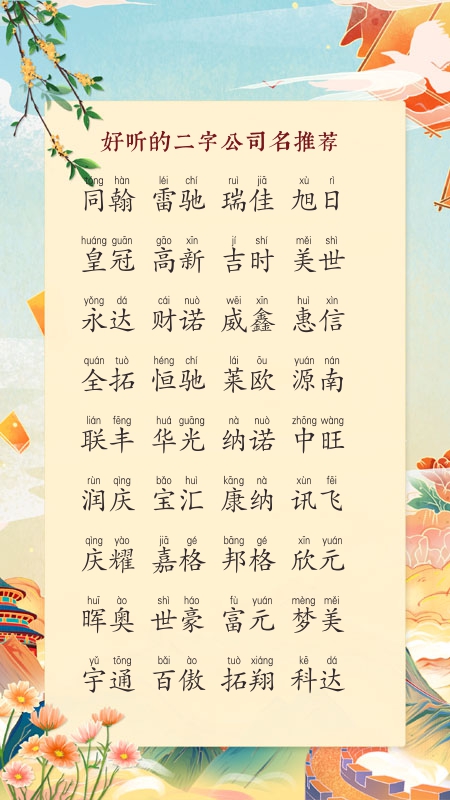 好听的二字公司名推荐
tóng hàn léi chí ruì jiā xù rì
同翰 雷驰 瑞佳 旭日
huáng guān gāo xīn jí shí měi shì
皇冠 高新 吉时 美世
yǒng dá cái nuò wēi xīn huì xìn
永达 财诺 威鑫 惠信
quán tuò héng chí lái ōu yuán nán
全拓 恒驰 莱欧 源南
lián fēng huá guāng nà nuò zhōng wàng
联丰 华光 纳诺 中旺
rùn qìng bǎo huì kāng nà xùn fēi
润庆 宝汇 康纳 讯飞
qìng yào jiā gé bāng gé xīn yuán
庆耀 嘉格 邦格 欣元
huī ào shì háo fù yuán mèng měi
晖奥 世豪 富元 梦美
yǔ tōng bǎi ào tuò xiáng kē dá
宇通 百傲 拓翔 科达